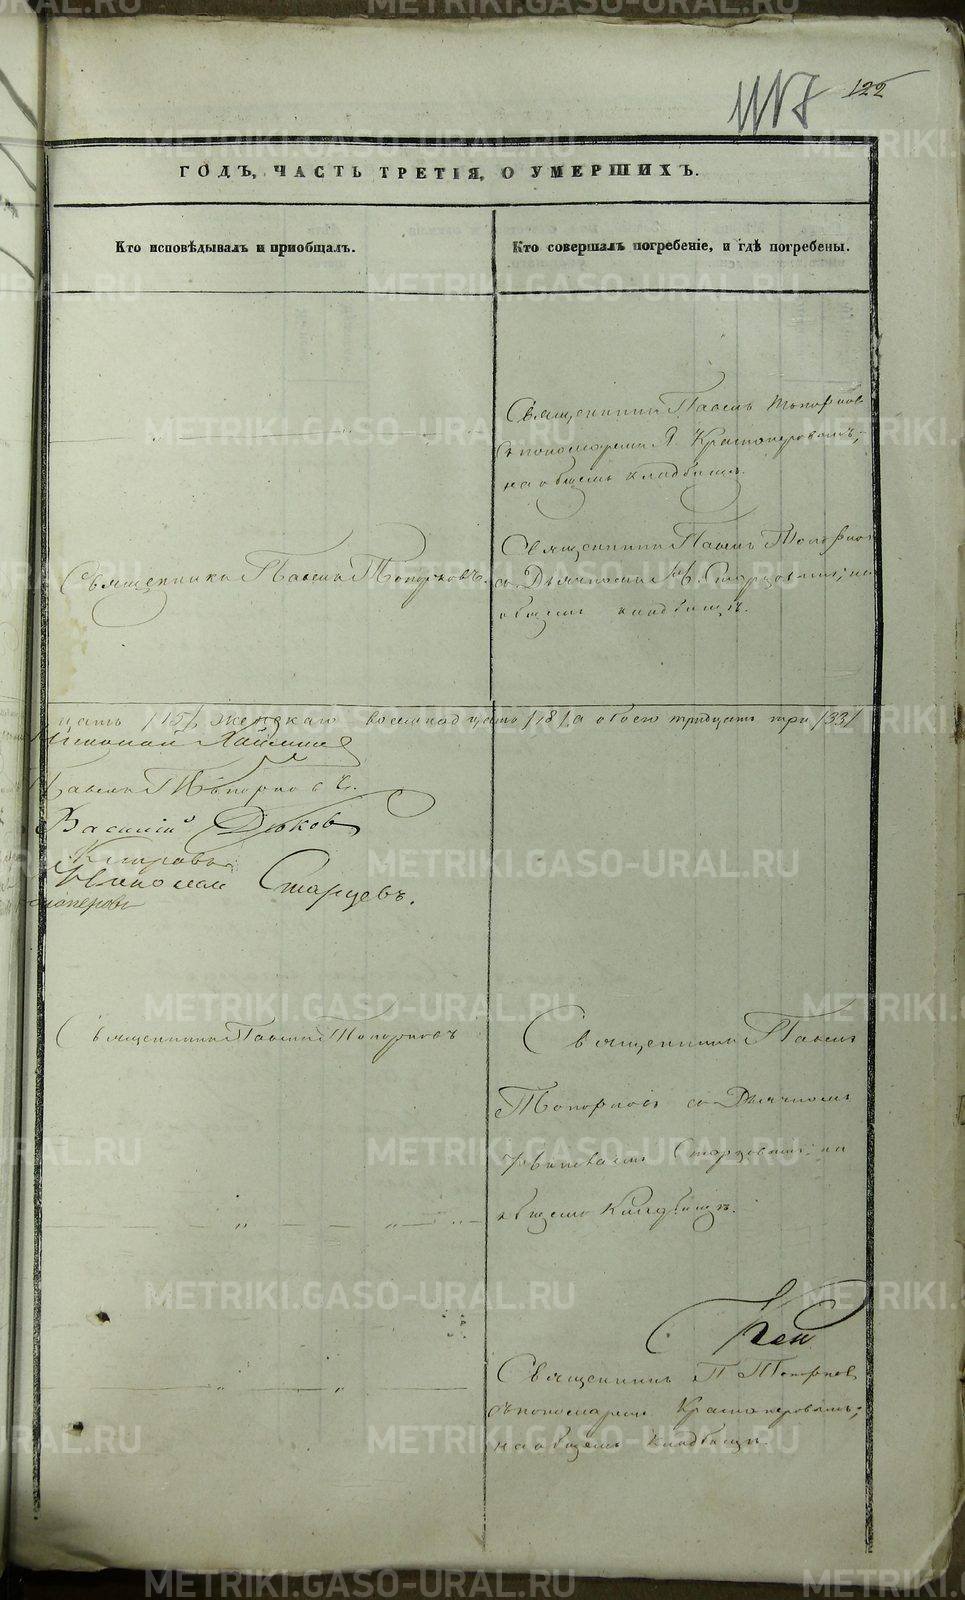 122
ГОДЪ, ЧАСТЬ ТРЕТІЯ, О УМЕРШИХЪ.
Кто исповѣдывалъ и пріобщалъ.
Кто совершалъ погребеніе, и гдѣ погребены.
Священникъ Павелъ Топорковъ
съ пономаремъ Красноперовымъ,
на общемъ кладбищѣ.
Священникъ Павелъ Топорковъ.
Священникъ Павелъ Топорков
съ Дьячкомъ Старцовымъ; на
общемъ кладбищѣ.
цать /15/, женскаго восемнадцать /18/, а обоего тридцать три /33/
Павелъ Топорковъ.
Василій Дюков
Николай Старцевъ.
Священникъ Павелъ Топорковъ
Священникъ Павелъ
Топорковъ съ Дьячкомъ
Старцовымъ; на
общемъ кладбищѣ.
Священникъ П Топорков
съ пономаремъ Красноперовымъ;
на общемъ кладбищѣ.
METRIKI.GASO-URAL.RU